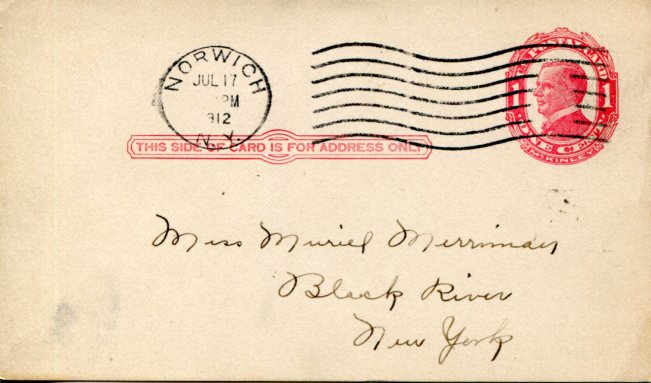 NORWICH
JUL 17
PM
912
N.Y.
U.S. POSTAGE PAID
1 1
ONE CENT
McKINLEY
THIS SIDE OF CARD IS FOR ADDRESS ONLY
Miss Muriel Merriman
Black River
New York